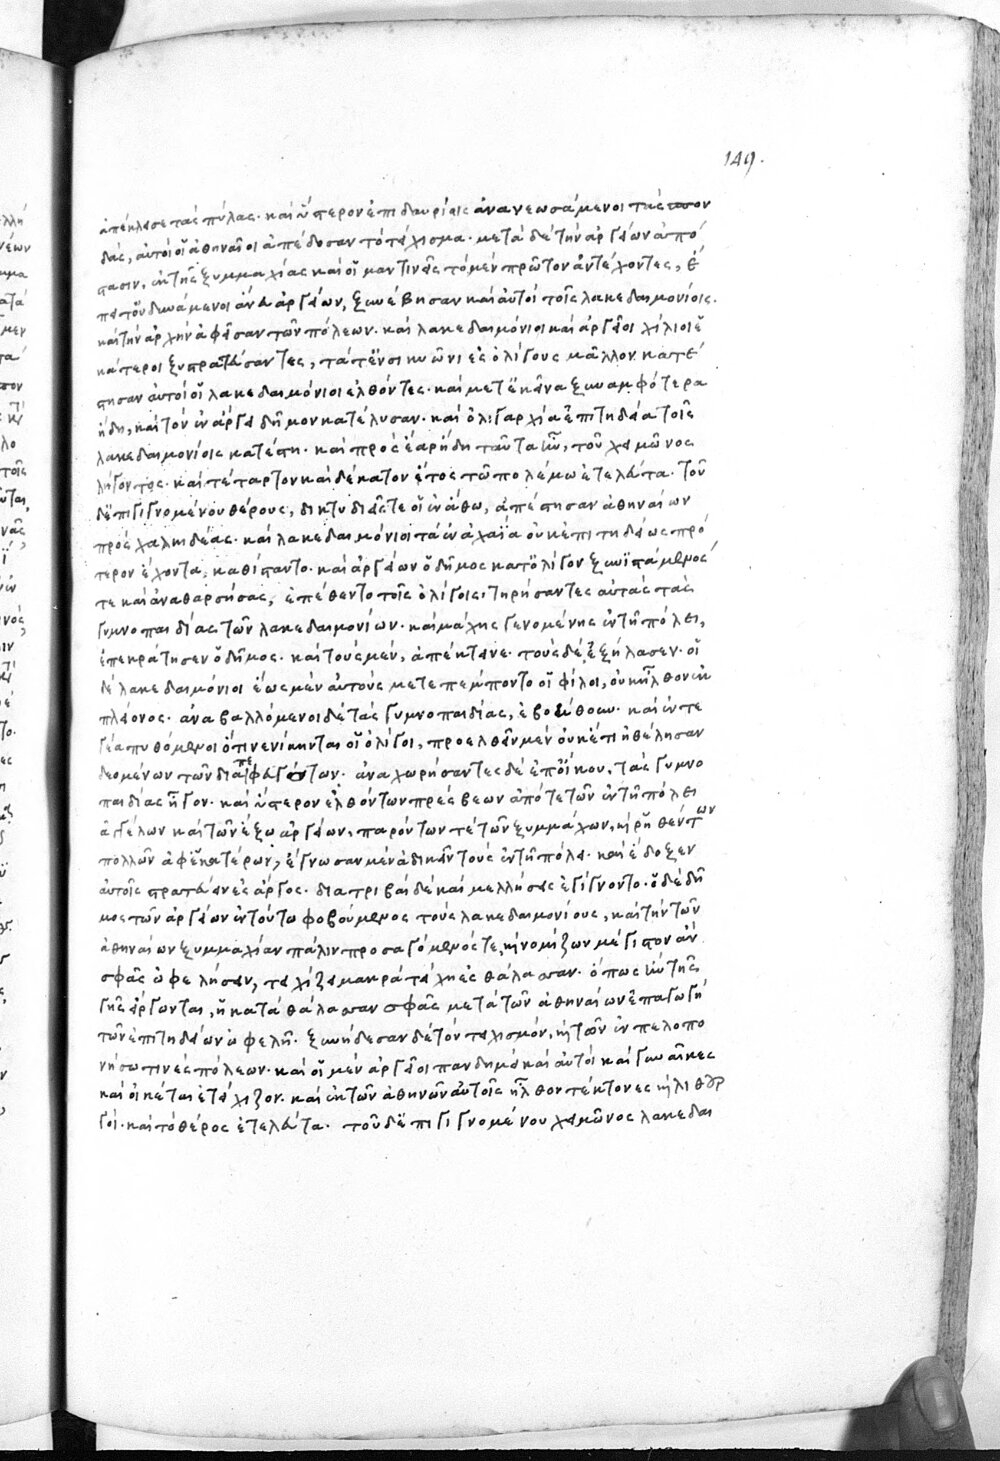 149.
ἀπέκλησε τὰς πύλας· καὶ ὕστερον ἐπιδαυρίοις ἀνανεωσάμενοι τὰς σπον
δάς, αὐτοὶ οἱ ἀθηναῖοι ἀπέδοσαν τὸ τείχισμα· μετὰ δὲ τὴν ἀργείων ἀπό
στασιν, ἐκ τῆς ξυμμαχίας καὶ οἱ μαντινῆς τὸ μὲν πρῶτον ἀντέχοντες, ἔ
πειτα οὐ δυνάμενοι ἄνευ ἀργείων, ξυνέβησαν καὶ αὐτοὶ τοῖς λακεδαιμονίοις·
καὶ τὴν ἀρχὴν ἀφεῖσαν τῶν πόλεων· καὶ λακεδαιμόνιοι καὶ ἀργεῖοι χίλιοι ἑ
κάτεροι ξυστρατεύσαντες, τά τ' ἐν σικυῶνι ἐς ὀλίγους μᾶλλον κατέ
στησαν αὐτοὶ οἱ λακεδαιμόνιοι ἐλθόντες· καὶ μετ' ἐκεῖνα ξυναμφότερα
ἤδη, καὶ τὸν ἐν ἄργει δῆμον κατέλυσαν· καὶ ὀλιγαρχία ἐπιτηδεία τοῖς
λακεδαιμονίοις κατέστη· καὶ πρὸς ἔαρ ἤδη ταῦτα ἦν, τοῦ χειμῶνος
λήγοντος· καὶ τέταρτον καὶ δέκατον ἔτος τῷ πολέμῳ ἐτελεύτα· τοῦ
δ' ἐπιγιγνομένου θέρους, δικτυδιεῖς τε οἱ ἐν ἄθῳ, ἀπέστησαν ἀθηναίων
πρὸς χαλκιδέας· καὶ λακεδαιμόνιοι τὰ ἐν ἀχαΐα οὐκ ἐπιτηδείως πρό
τερον ἔχοντα, καθίσταντο· καὶ ἀργείων ὁ δῆμος κατ' ὀλίγον ξυνϊστάμενός
τε καὶ ἀναθαρσήσας, ἐπέθεντο τοῖς ὀλίγοις· τηρήσαντες αὐτὰς τὰς
γυμνοπαιδίας τῶν λακεδαιμονίων· καὶ μάχης γενομένης ἐν τῇ πόλει,
ἐπεκράτησεν ὁ δῆμος· καὶ τοὺς μὲν, ἀπέκτεινε· τοὺς δὲ, ἐξήλασεν· οἱ
δὲ λακεδαιμόνιοι ἕως μὲν αὐτοὺς μετεπέμποντο οἱ φίλοι, οὐκ ἦλθον ἐκ
πλείονος· ἀναβαλλόμενοι δὲ τὰς γυμνοπαιδίας, ἐβοήθουν· καὶ ἐν τε
γέα πυθόμενοι ὅτι νενίκηνται οἱ ὀλίγοι, προελθεῖν μὲν οὐκέτι ἠθέλησαν
δεομένων τῶν διαπεφευγότων· ἀναχωρήσαντες δὲ ἐπ' οἴκου, τὰς γυμνο
παιδίας ἦγον· καὶ ὕστερον ἐλθόντων πρέσβεων ἀπό τε τῶν ἐν τῇ πόλει
ἀγγέλων καὶ τῶν ἔξω ἀργείων, παρόντων τέ τῶν ξυμμάχων, καὶ ῥηθέντων
πολλῶν ἀφ' ἑκατέρων, ἔγνωσαν μὲν ἀδικεῖν τοὺς ἐν τῇ πόλει· καὶ ἔδοξεν
αὐτοῖς στρατεύειν ἐς ἄργος· διατριβαὶ δὲ καὶ μελλήσεις ἐγίγνοντο· ὁ δὲ δῆ
μος τῶν ἀργείων ἐν τούτῳ φοβούμενος τοὺς λακεδαιμονίους, καὶ τὴν τῶν
ἀθηναίων ξυμμαχίαν πάλιν προσαγόμενός τε, καὶ νομίζων μέγιστον ἂν
σφᾶς ὠφελήσειν, τειχίζει μακρὰ τείχη ἐς θάλασσαν· ὅπως ἢν τῆς
γῆς εἴργωνται, ἡ κατὰ θάλασσαν σφᾶς μετὰ τῶν ἀθηναίων ἐπαγωγή
τῶν ἐπιτηδείων ὠφελῇ· ξυνῄδεσαν δὲ τὸν τειχισμόν, καὶ τῶν ἐν πελοπο
νήσῳ τινὲς πόλεων· καὶ οἱ μὲν ἀργεῖοι πανδημεὶ καὶ αὐτοὶ καὶ γυναῖκες
καὶ οἰκέται ἐτείχιζον· καὶ ἐκ τῶν ἀθηνῶν αὐτοῖς ἦλθον τέκτονες καὶ λιθουρ
γοί· καὶ τὸ θέρος ἐτελεύτα· τοῦ δ' ἐπιγιγνομένου χειμῶνος λακεδαι